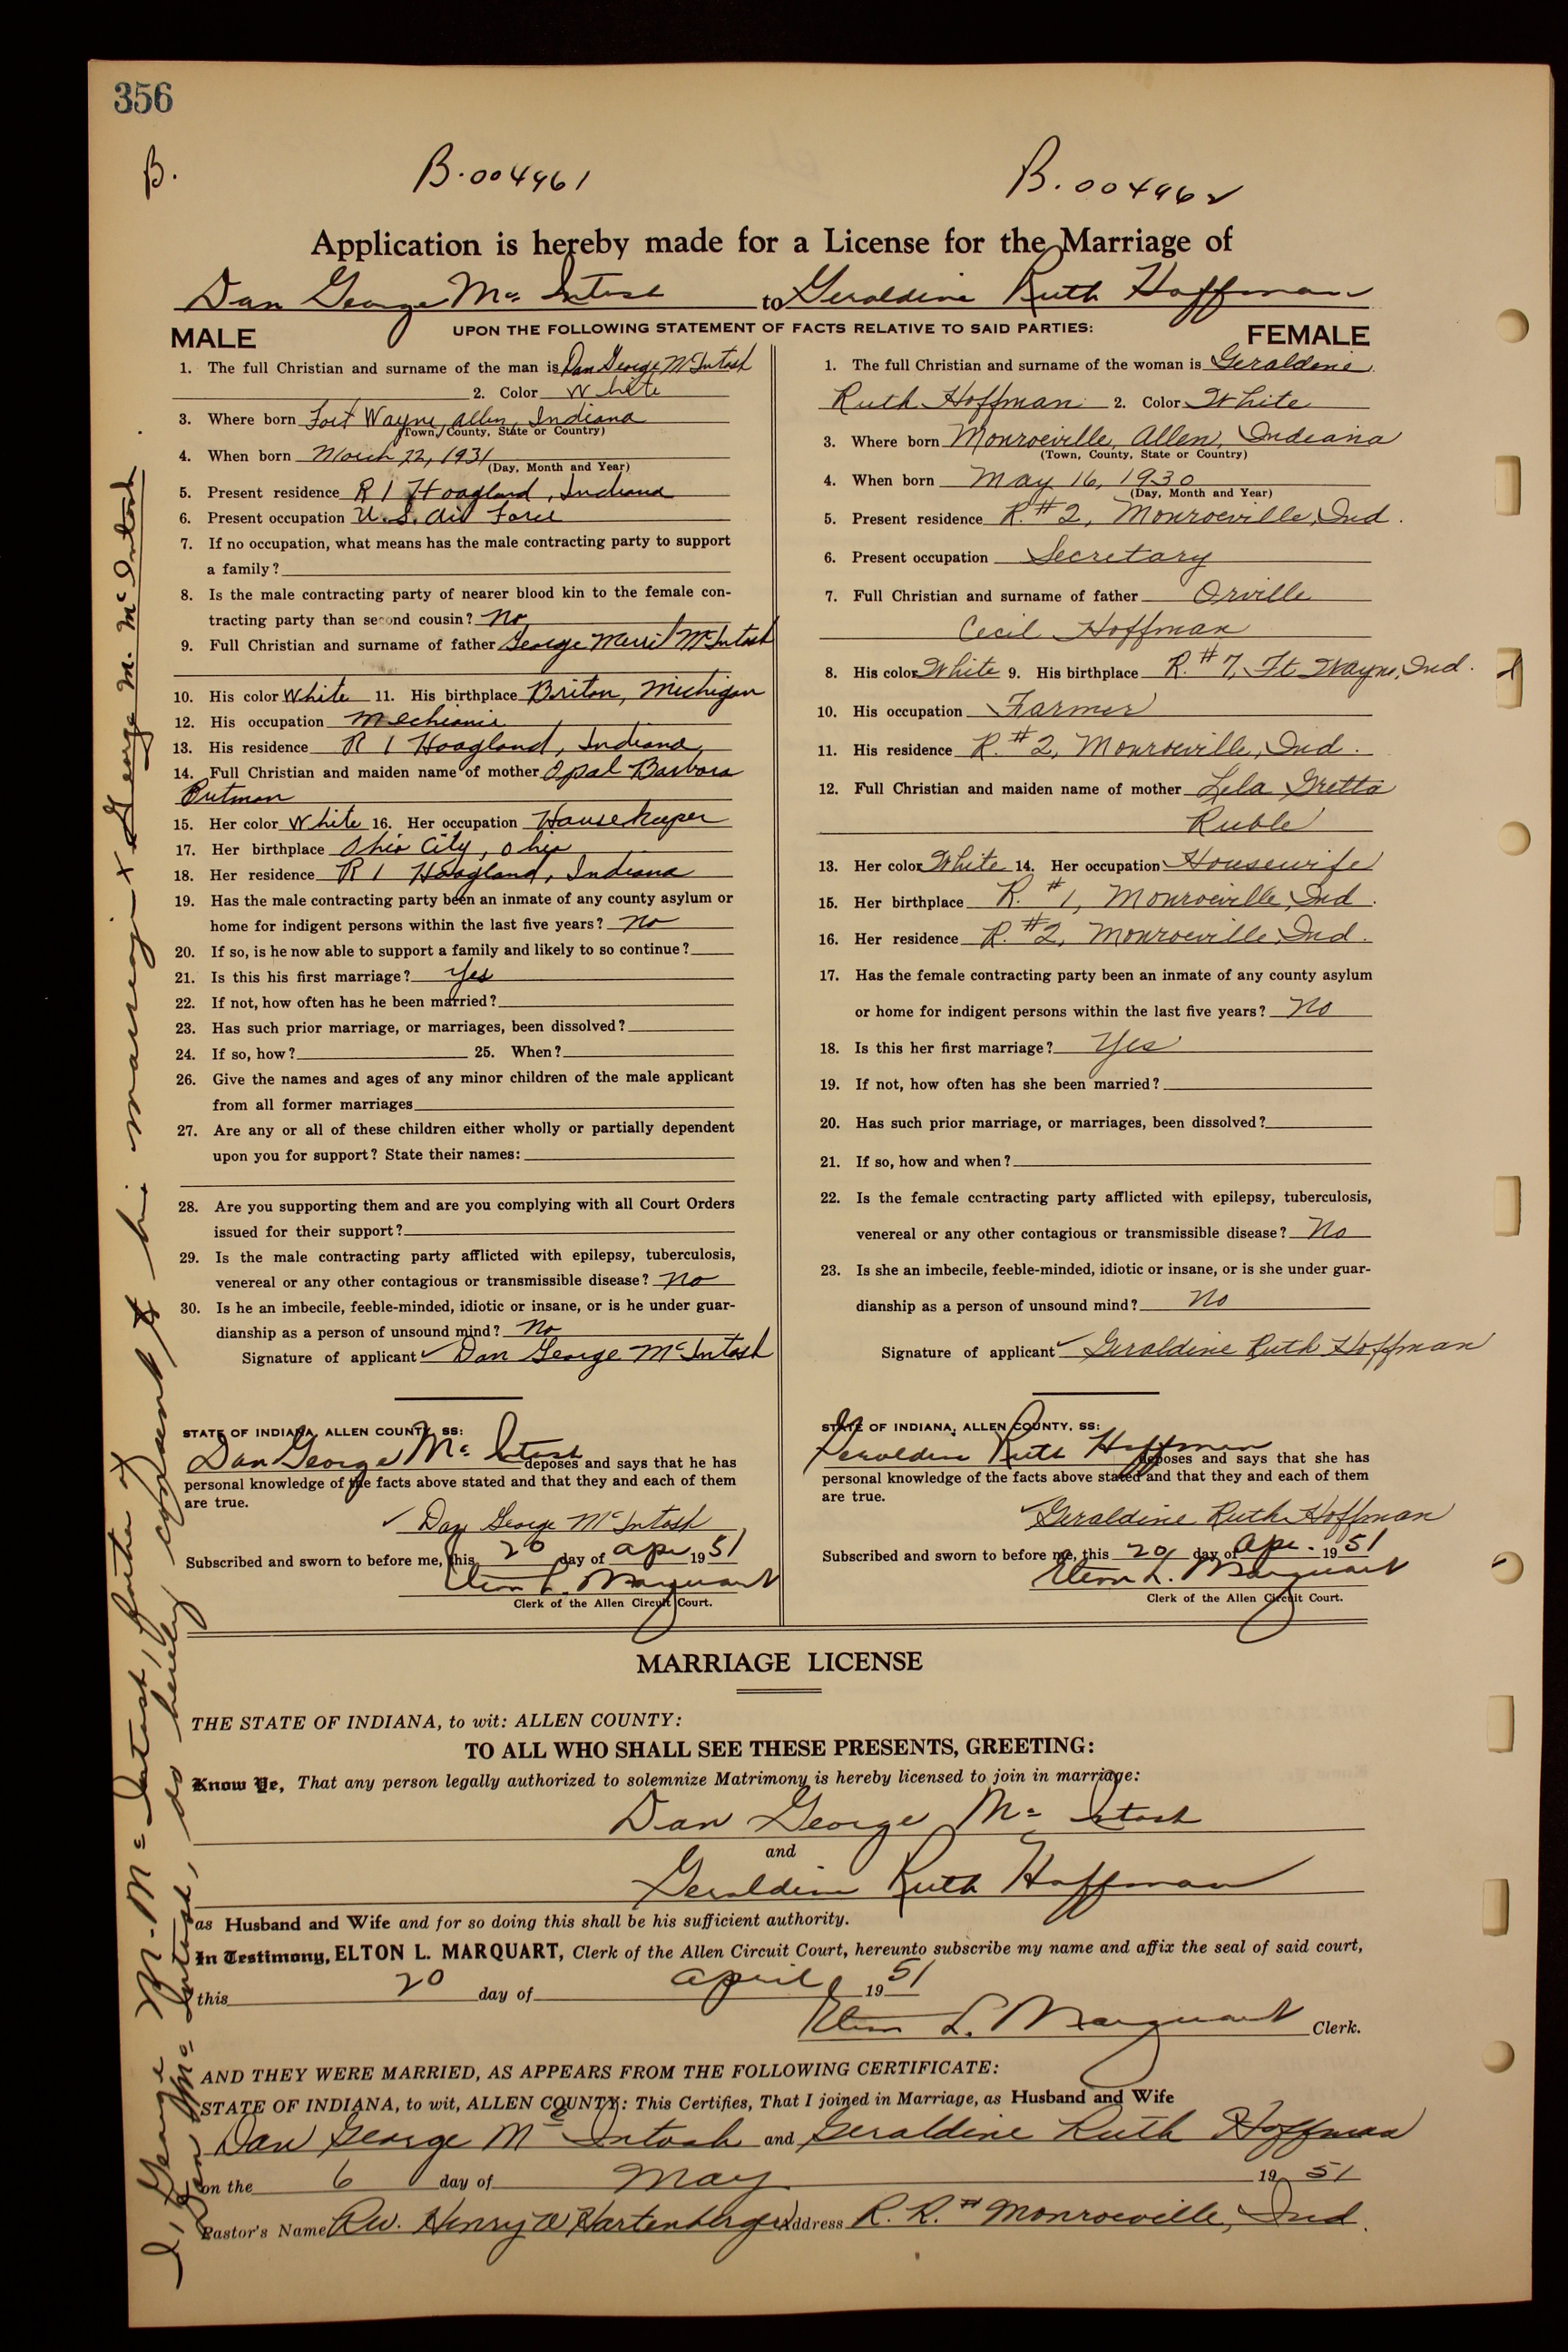 356
B.
B.004961
B.004962
Application is hereby made for a License for the Marriage of
Dan George Mc Intosh to Geraldine Ruth Hoffman
UPON THE FOLLOWING STATEMENT OF FACTS RELATIVE TO SAID PARTIES:
MALE
1. The full Christian and surname of the man is Dan George McIntosh
2. Color White
3. Where born Fort Wayne, Allen, Indiana
(Town, County, State or Country)
4. When born March 22, 1931
(Day, Month and Year)
5. Present residence R 1 Hoagland, Indiana
6. Present occupation U.S. Air Force
7. If no occupation, what means has the male contracting party to support
a family?
8. Is the male contracting party of nearer blood kin to the female con-
tracting party than second cousin? No
9. Full Christian and surname of father George Merril McIntosh
10. His color White 11. His birthplace Briton, Michigan
12. His occupation Mechanic
13. His residence R 1 Hoagland, Indiana
14. Full Christian and maiden name of mother Opal Barbara
Putman
15. Her color White 16. Her occupation Housekeeper
17. Her birthplace Ohio City, Ohio
18. Her residence R 1 Hoagland, Indiana
19. Has the male contracting party been an inmate of any county asylum or
home for indigent persons within the last five years? No
20. If so, is he now able to support a family and likely to so continue?
21. Is this his first marriage? Yes
22. If not, how often has he been married?
23. Has such prior marriage, or marriages, been dissolved?
24. If so, how? 25. When?
26. Give the names and ages of any minor children of the male applicant
from all former marriages
27. Are any or all of these children either wholly or partially dependent
upon you for support? State their names:
28. Are you supporting them and are you complying with all Court Orders
issued for their support?
29. Is the male contracting party afflicted with epilepsy, tuberculosis,
venereal or any other contagious or transmissible disease? No
30. Is he an imbecile, feeble-minded, idiotic or insane, or is he under guar-
dianship as a person of unsound mind? No
Signature of applicant Dan George McIntosh
STATE OF INDIANA, ALLEN COUNTY, SS:
Dan George Mc Intosh deposes and says that he has
personal knowledge of the facts above stated and that they and each of them
are true.
Dan George McIntosh
Subscribed and sworn to before me, this 20 day of Apr 1951
Elton L. Marquart
Clerk of the Allen Circuit Court.
FEMALE
1. The full Christian and surname of the woman is Geraldine
Ruth Hoffman 2. Color White
3. Where born Monroeville, Allen, Indiana
(Town, County, State or Country)
4. When born May 16, 1930
(Day, Month and Year)
5. Present residence R. #2, Monroeville, Ind.
6. Present occupation Secretary
7. Full Christian and surname of father Orville
Cecil Hoffman
8. His color White 9. His birthplace R. #7, Ft. Wayne, Ind.
10. His occupation Farmer
11. His residence R. #2, Monroeville, Ind.
12. Full Christian and maiden name of mother Lela Gretta
Ruble
13. Her color White 14. Her occupation Housewife
15. Her birthplace R. #1, Monroeville, Ind.
16. Her residence R. #2, Monroeville, Ind.
17. Has the female contracting party been an inmate of any county asylum
or home for indigent persons within the last five years? No
18. Is this her first marriage? Yes
19. If not, how often has she been married?
20. Has such prior marriage, or marriages, been dissolved?
21. If so, how and when?
22. Is the female contracting party afflicted with epilepsy, tuberculosis,
venereal or any other contagious or transmissible disease? No
23. Is she an imbecile, feeble-minded, idiotic or insane, or is she under guar-
dianship as a person of unsound mind? No
Signature of applicant Geraldine Ruth Hoffman
STATE OF INDIANA, ALLEN COUNTY, SS:
Geraldine Ruth Hoffman deposes and says that she has
personal knowledge of the facts above stated and that they and each of them
are true.
Geraldine Ruth Hoffman
Subscribed and sworn to before me, this 20 day of Apr. 1951
Elton L. Marquart
Clerk of the Allen Circuit Court.
MARRIAGE LICENSE
THE STATE OF INDIANA, to wit: ALLEN COUNTY:
TO ALL WHO SHALL SEE THESE PRESENTS, GREETING:
Know Ye, That any person legally authorized to solemnize Matrimony is hereby licensed to join in marriage:
Dan George Mc Intosh
and
Geraldine Ruth Hoffman
as Husband and Wife and for so doing this shall be his sufficient authority.
In Testimony, ELTON L. MARQUART, Clerk of the Allen Circuit Court, hereunto subscribe my name and affix the seal of said court,
this 20 day of April 1951
Elton L. Marquart Clerk.
AND THEY WERE MARRIED, AS APPEARS FROM THE FOLLOWING CERTIFICATE:
STATE OF INDIANA, to wit, ALLEN COUNTY: This Certifies, That I joined in Marriage, as Husband and Wife
Dan George Mc Intosh and Geraldine Ruth Hoffman
on the 6 day of May 1951
Pastor's Name Rev. Henry W Hartenberger Address R. R. # Monroeville, Ind.
I, George M. Mc Intosh, father of
Dan Mc Intosh, do hereby consent to his marriage x George M. McIntosh